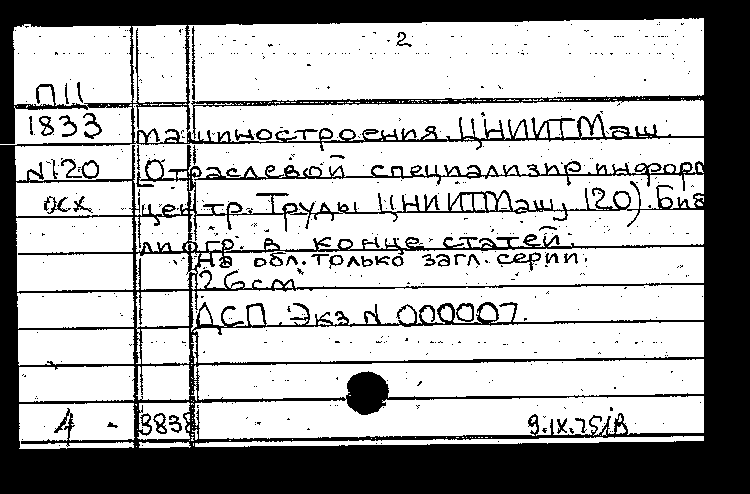 2
П11
1833 машиностроения. ЦНИИТМаш.
N120 [Отраслевой специализир. информ
осх центр. Труды ЦНИИТМаш, 120). Биб
лиогр. в конце статей.
На обл. только загл. серии.
26см.
ДСП. Экз. N 000007.
4 - 3838 9.IX.75